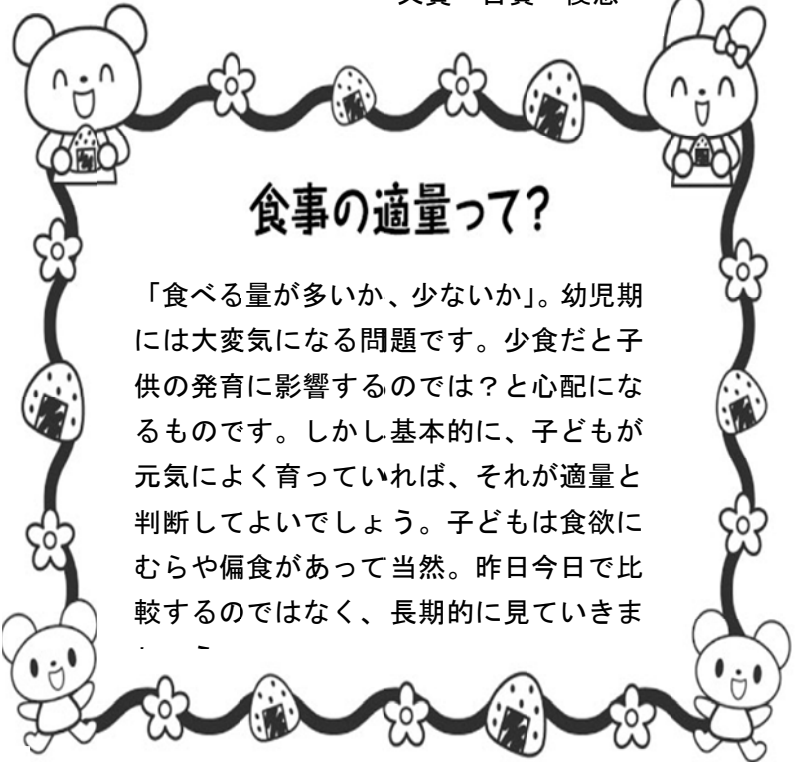 食事の適量って?
「食べる量が多いか、少ないか」。幼児期
には大変気になる問題です。少食だと子
供の発育に影響するのでは？と心配にな
るものです。しかし基本的に、子どもが
元気によく育っていれば、それが適量と
判断してよいでしょう。子どもは食欲に
むらや偏食があって当然。昨日今日で比
較するのではなく、長期的に見ていきま